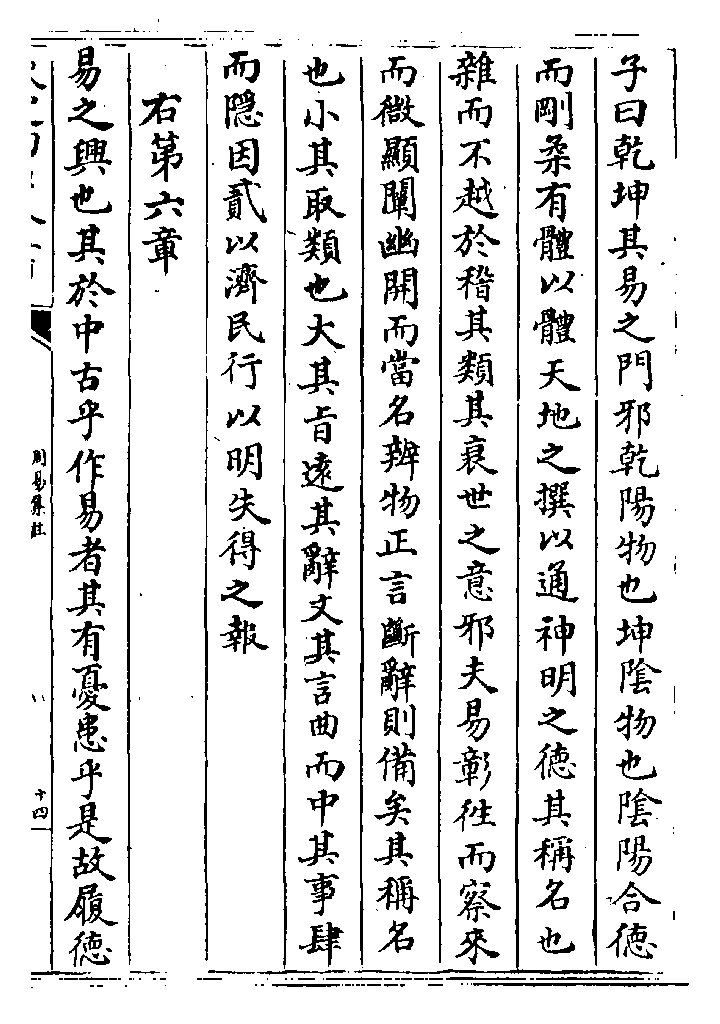 子曰乾坤其易之門邪乾陽物也坤陰物也陰陽合德
而剛柔有體以體天地之撰以通神明之德其稱名也
雜而不越於稽其類其衰世之意邪夫易彰往而察來
而微顯闡幽開而當名辨物正言斷辭則備矣其稱名
也小其取類也大其旨遠其辭文其言曲而中其事肆
而隱因貳以濟民行以明失得之報
右第六章
易之興也其於中古乎作易者其有憂患乎是故履德
周易集註
十四